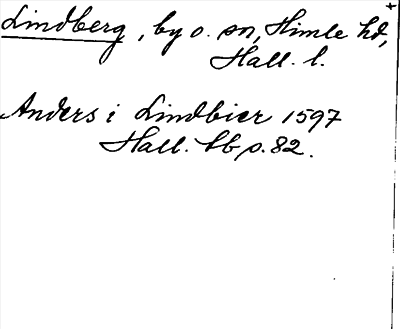 Lindberg, by o. sn, Himle hd,
Hall. l.
Anders i Lindbier 1597
Hall. bb s. 82.